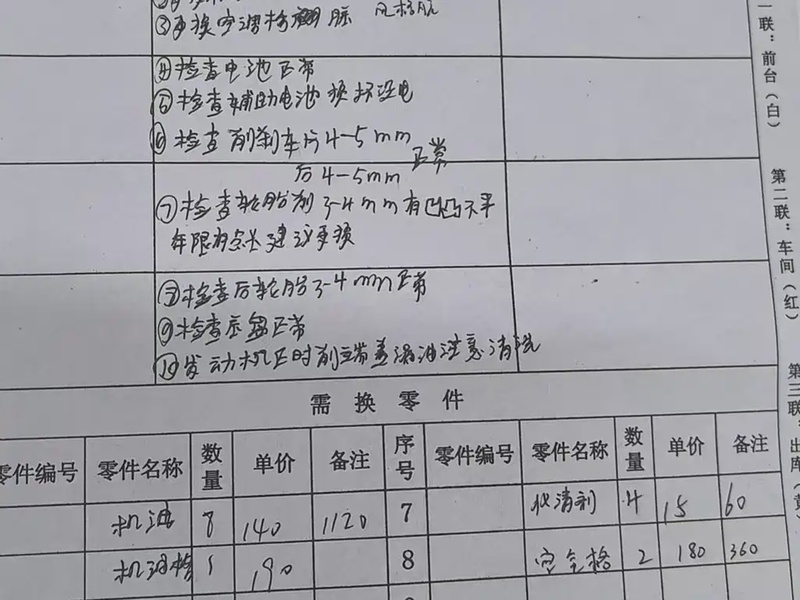 ③更换空调格 风格脏
④检查电池正常
⑤检查辅助电池 换
⑥检查前刹车片4-5mm
后4-5mm 正常
⑦检查轮胎前3-4mm有凹凸不平
年限有点长建议更换
⑧检查后轮胎3-4mm正常
⑨检查底盘正常
⑩发动机正时前端盖漏油注意清洗
需换零件
零件编号 零件名称 数量 单价 备注 序号 零件编号 零件名称 数量 单价 备注
机油 8 140 1120 7 化清剂 4 15 60
机油格 1 190 8 空气格 2 180 360
一联：前台（白）
第二联：车间（红）
第三联：出库（